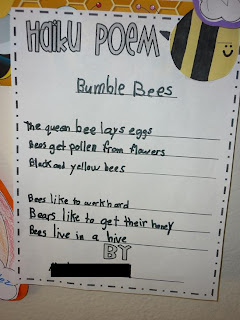 Haiku Poem
Bumble Bees
The queen bee lays eggs
Bees get pollen from flowers
Black and yellow bees
Bees like to work hard
Bears like to get their honey
Bees live in a hive
BY